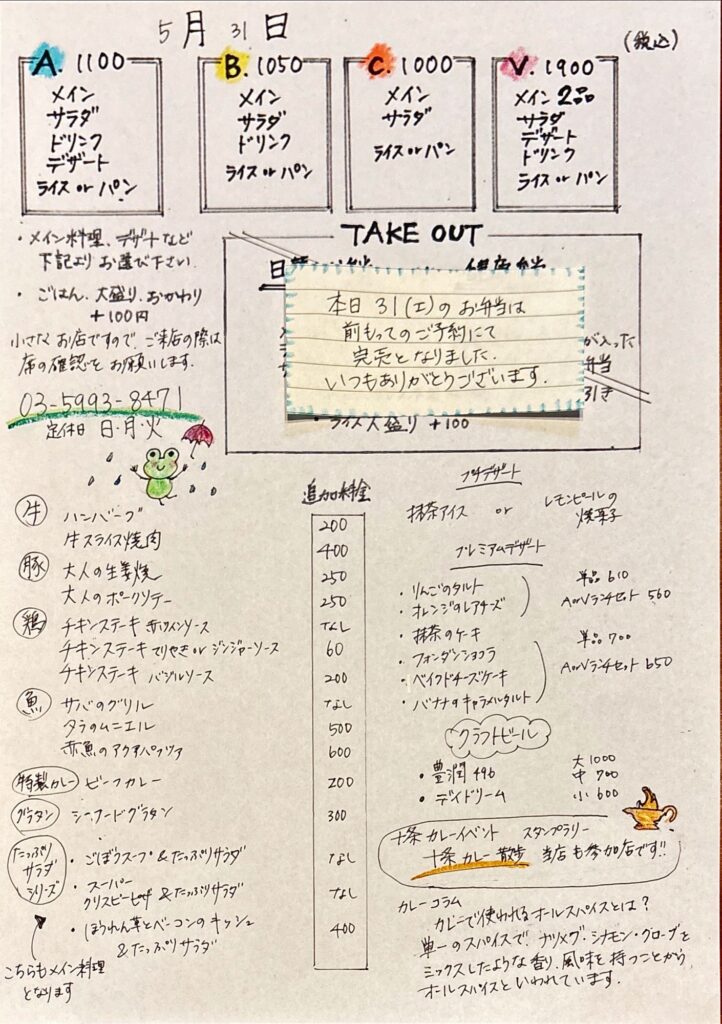 5月31日
(税込)
A. 1100
メイン
サラダ
ドリンク
デザート
ライス or パン
B. 1050
メイン
サラダ
ドリンク
ライス or パン
C. 1000
メイン
サラダ
ライス or パン
V. 1900
メイン 2品
サラダ
デザート
ドリンク
ライス or パン
・メイン料理、デザートなど
下記よりお選び下さい
・ごはん、大盛り、おかわり
+100円
小さなお店ですので、ご来店の際は
席の確認をお願いします。
03-5993-8471
定休日 日・月・火
TAKE OUT
本日 31(土)のお弁当は
前もってのご予約にて
完売となりました.
いつもありがとうございます.
が入った
弁当
引き
・ライス大盛り +100
追加料金
牛 ハンバーグ 200
牛スライス焼肉 400
豚 大人の生姜焼 250
大人のポークソテー 250
鶏 チキンステーキ 赤ワインソース なし
チキンステーキ てりやき or ジンジャーソース 60
チキンステーキ バジルソース 200
魚 サバのグリル なし
タラのムニエル 500
赤魚のアクアパッツァ 600
特製カレー ビーフカレー 200
グラタン シーフードグラタン 300
たっぷり
サラダ
シリーズ
・ごぼうスープ&たっぷりサラダ なし
・スーパー
クリスピーピザ &たっぷりサラダ なし
・ほうれん草とベーコンのキッシュ 400
&たっぷりサラダ
こちらもメイン料理
となります
プチデザート
抹茶アイス or レモンピールの
焼菓子
プレミアムデザート
・りんごのタルト
・オレンジのレアチーズ
単品 610
AorVランチセット 560
・抹茶のケーキ
・フォンダンショコラ
・ベイクドチーズケーキ
・バナナのキャラメルタルト
単品 700
AorVランチセット 650
クラフトビール
・豊潤 496
・デイドリーム
大 1000
中 700
小 600
十条カレーイベント スタンプラリー
十条 カレー 散歩 当店も参加店です!!
カレーコラム
カレーで使われるオールスパイスとは?
単一のスパイスで、ナツメグ・シナモン・クローブを
ミックスしたような香り、風味を持つことから
オールスパイスといわれています.